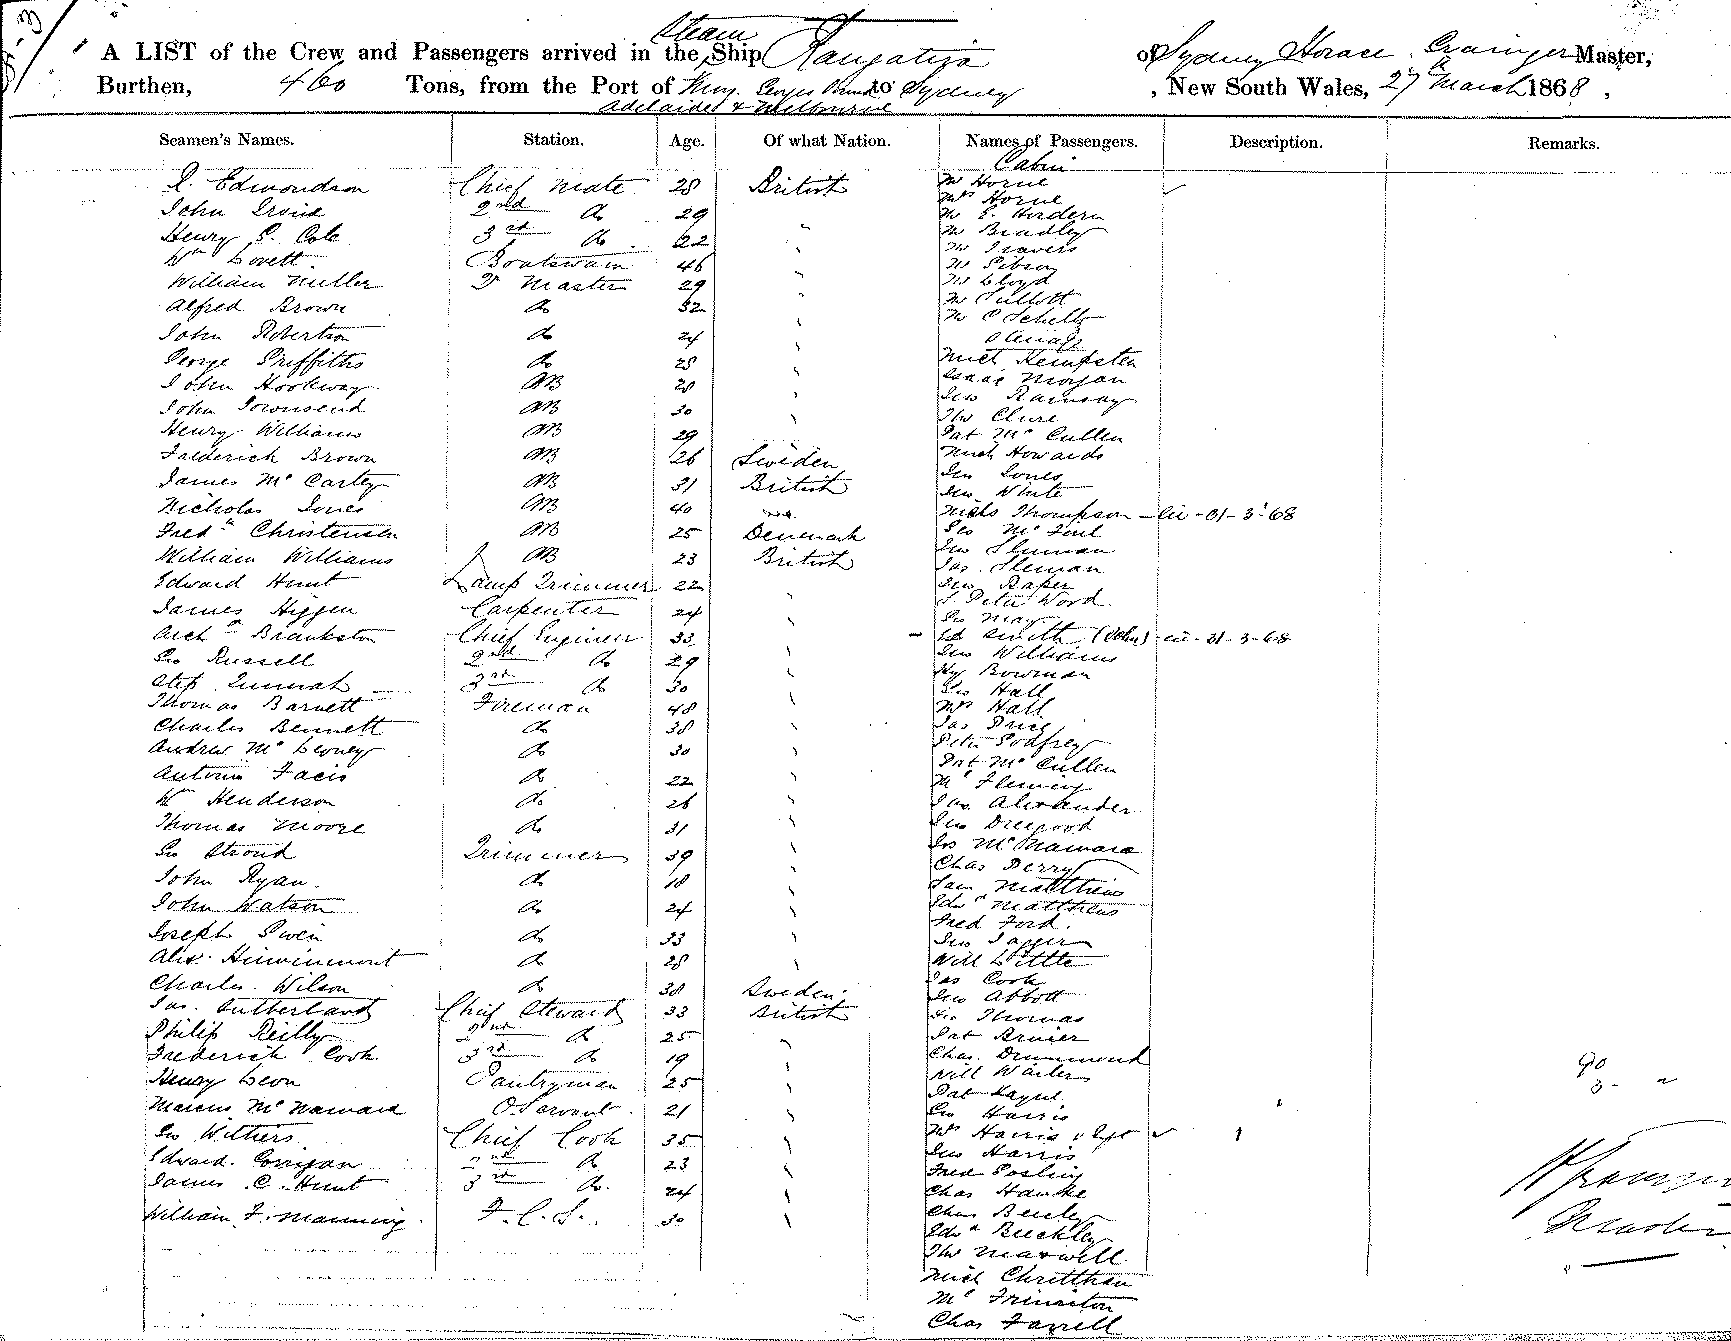 A LIST of the Crew and Passengers arrived in the Steam Ship Rangatira of Sydney Horace Grainger Master,
Burthen, 460 Tons, from the Port of King Georges Sound to Sydney, New South Wales, 27th March 1868,
Adelaide & Melbourne
Seamen's Names. Station. Age. Of what Nation. Names of Passengers. Description. Remarks.
Cabin
Edmondson Chief Mate 28 British Mr Horne
Mrs Horne
John 2nd do 29 Mr E. Hordern
Henry Cole 3rd do 22 Mr Bradley
Mr Travers
Wm Lovett Boatswain 46 Mr Gibson
William Miller Qr Master 29 Mr Lloyd
Alfred Brown do 32 Mr
Mr C Schultz
John Robertson do 24
George Griffiths do 28 Mich Kempster
John Hookway AB 28 Isaac Morgan
Jno Ramsay
John Townsend AB 30 Thos Clure
Henry Williams AB 29 Pat McCullen
Frederick Brown AB 26 Sweden Mich Howards
James McCartey AB 31 British Jno Jones
Jno White
Nicholas Jones AB 40 Thompson 31-3-68
Fredk Christensen AB 25 Denmark Geo
William Williams AB 23 British Jno Sleman
Jas Sleman
Edward Hunt Lamp Trimmer 22 Jno Raper
James Higgen Carpenter 24 Peter Wood
Geo May
Archd Brankston Chief Engineer 33 Ed Smith (John) 31-3-68
Geo Russell 2nd do 29 Jno Williams
Hy Bowman
3rd do 30 Geo Hall
Thomas Barnett Fireman 48 Mrs Hall
Charles Bennett do 38 Jas Price
Andrew McLeoney do 30 Peter Godfrey
Pat McCullen
Antonio Facis do 22 Fleming
W Henderson do 26 Jas Alexander
Thomas Moore do 31 Jno
Geo Stroud Trimmer 39 Jos McNamara
Chas Perry
John Ryan do 18 Sam Matthews
John Watson do 24 Edwd Matthews
Fred Ford
Joseph Owen do 33 Jno Jagger
Alex do 28 Will Little
Charles Wilson do 38 Sweden Jas Cook
Jno Abbott
Jas Sutherland Chief Steward 33 British Geo Thomas
Philip Reilly 2nd do 25 Pat
Frederick Cook 3rd do 19 Chas Drummond
Henry Leon Pantryman 25 Will
Pat
Marcus McNamara O. Servant 21 Geo Harris
Geo Withers Chief Cook 35 Mrs Harris
Jno Harris
Edward Corrigan 2nd do 23 Fred Gosling
James C. Hunt 3rd do 24 Chas Hawke
William F. Manning F.C.S. 30 Chas
Edwd Buckley
Thos Maxwell
Mich
Chas Farrell
90
3
Master